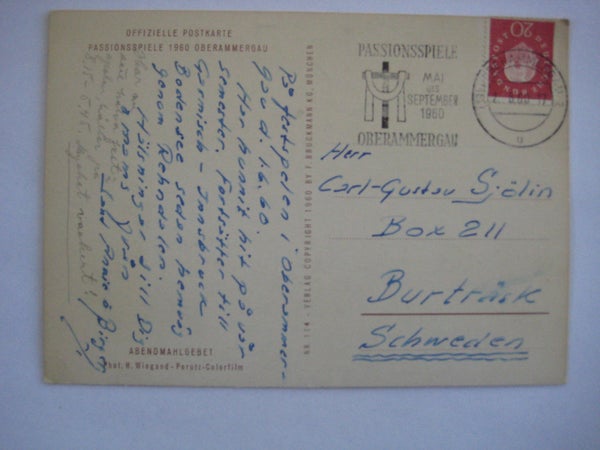 OFFIZIELLE POSTKARTE
PASSIONSSPIELE 1960 OBERAMMERGAU
På festspelen i Oberammer-
gau d. 1.6.60.
Har hunnit hit på vår
semester. Fortsätter till
Garmisch - Innsbruck
Bodensee sedan hemåt
genom Rehndalen.
Hälsningar till Dig
från
ABENDMAHLGEBET
Phot. H. Wiegand - Perutz-Colorfilm
NR. 114 - VERLAG COPYRIGHT 1960 BY F. BRUCKMANN KG, MÜNCHEN
PASSIONSSPIELE
MAI
BIS
SEPTEMBER
1960
OBERAMMERGAU
DEUTSCHE BUNDESPOST
20
Herr
Carl-Gustav Sjölin
Box 211
Burträsk
Schweden